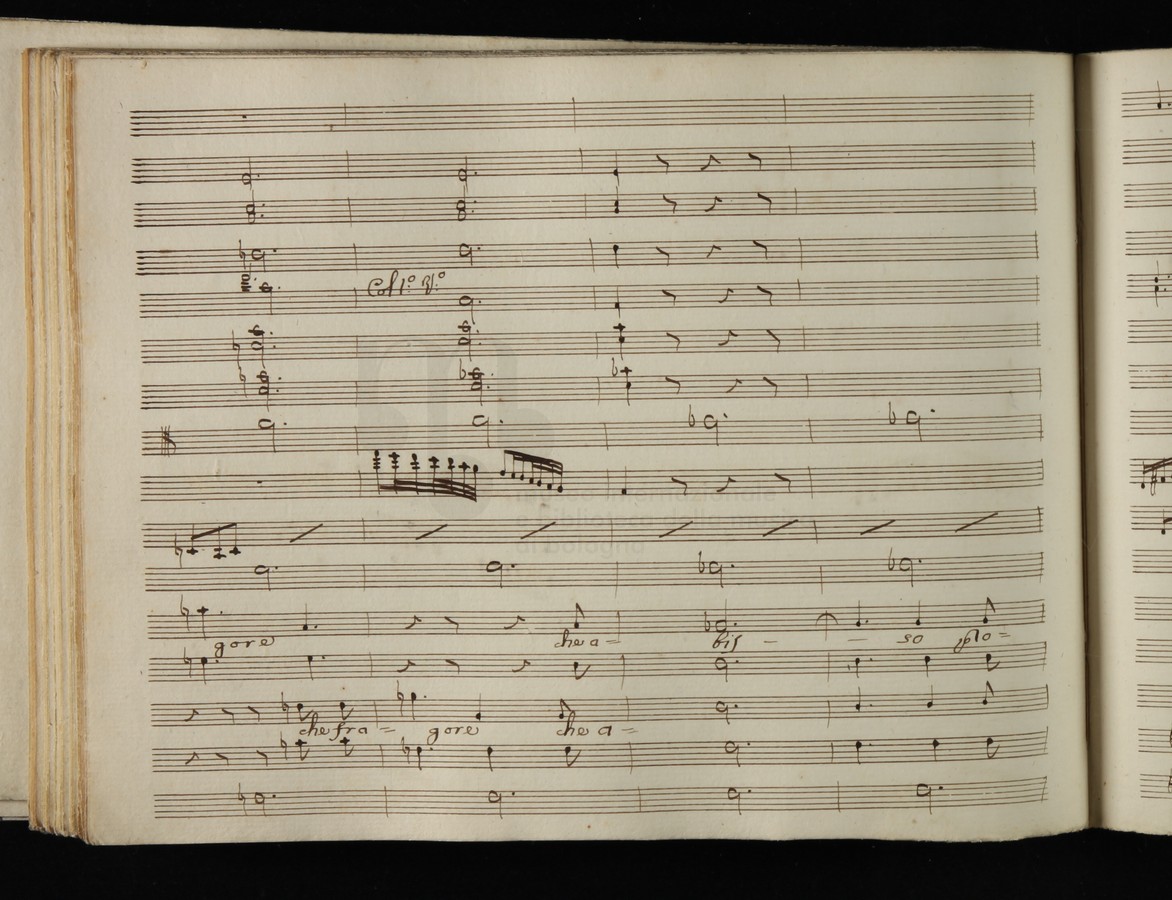 Col 1º Vº
museo internazionale
e biblioteca della musica
di bologna
gore che a= bis - - so plo=
che fra= gore che a=